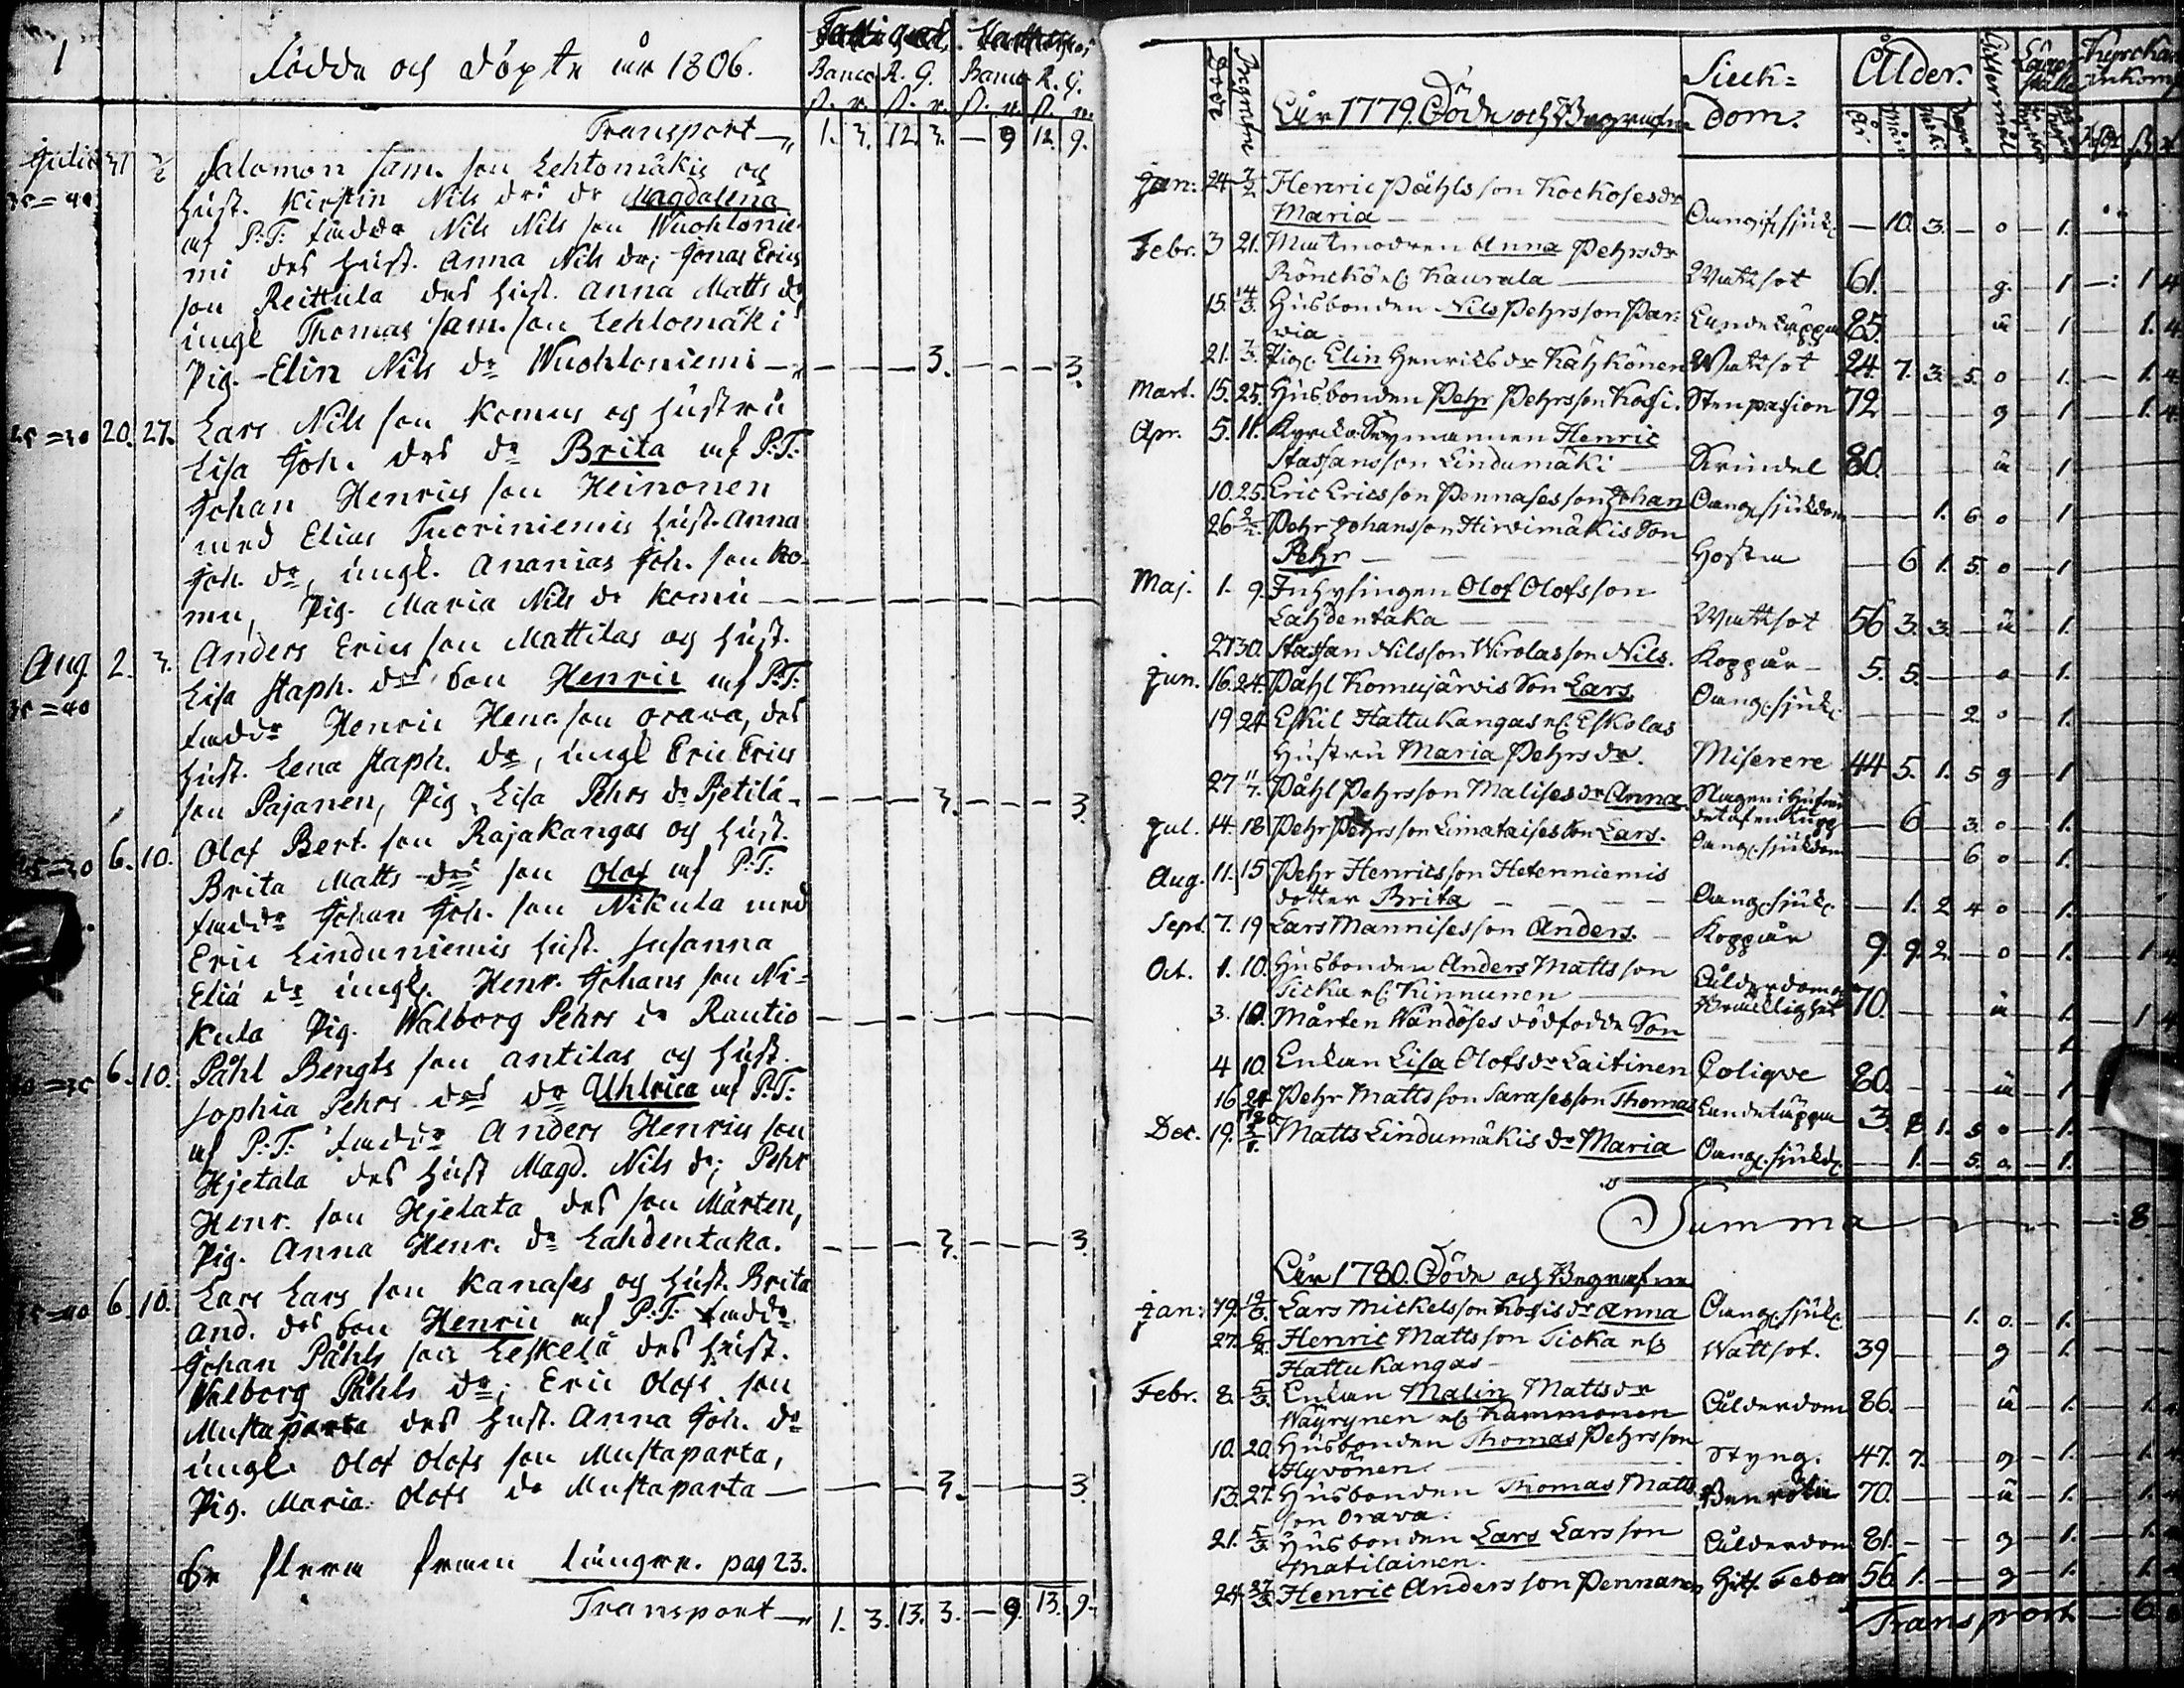 1
Födde och döpte år 1806.
Banco R. G. Banco R. G.
Transport 1. 3. 12. 3. — 9 12. 9.
Julii 31 Salomon Sam. son Lehtomäkis och
hust. Kirstin Nils dr dr Magdalena
af P:T: faddr Nils Nils son Wuohtonie-
mi des hust. Anna Nils dr; Jonas Erics
son Reittula des hust. Anna Matts dr
ungl Thomas Sam. son Lehtomäki
Pig. Elin Nils dr Wuohtoniemi — 3. — 3.
25=30 20. 27. Lars Nils son Komus och hustru
Lisa Joh. drs dr Brita af P:T:
Johan Henrics son Heinonen
med Elias Tuoriniemis hust. Anna
Joh. dr, ungl. Ananias Joh. son Ko-
mu, Pig. Maria Nils dr Komu
Aug. 2. 3. Anders Erics son Mattilas och hust.
35=40 Lisa Staph. drs son Henric af P:T:
faddr Henric Henr. son Orava, des
hust. Lena Staph. dr, ungl Eric Erics
son Pajanen, Pig. Lisa Pehrs dr Pjetilä — 3. — 3
25=30 6. 10. Olof Bert. son Rajakangas och hust.
Brita Matts drs son Olof af P:T:
faddr Johan Joh. son Nikula med
Eric Linduniemis hust. Susanna
Eliä dr ungl. Henr. Johans son Ni-
kula Pig. Walborg Pehrs dr Rautio
6. 10. Påhl Bengts son Antilas och hust.
Sophia Pehrs drs dr Uhlrica af P:T:
af P:T: faddr Anders Henrics son
Hjetala des hust Magd. Nils dr; Pehr
Henr. son Hjelata des son Mårten,
Pig. Anna Henr. dr Lahdentaka. — 3. — 3.
6. 10. Lars Lars son Kanases och hust. Brita
And. drs son Henric af P:T: faddr
Johan Påhls son Leskelä des hust.
Walborg Påhls dr; Eric Olofs son
Mustaparta des hust. Anna Joh. dr
ungl. Olof Olofs son Mustaparta,
Pig. Maria Olofs dr Mustaparta — 3. — 3.
Se flere fram längre. pag 23.
Transport 1. 3. 13. 3. — 9. 13. 9.
År 1779. Döde och Begrafne Siuk=dom. Ålder. Kyrckans inkomst
Jan: 24 7/2 Henric Påhlsson Kockoses dr
Maria — Oang. sjukd. — 10. 3. — o — 1.
Febr. 3 21. Matmodren Anna Pehrsdr
Rönckö el. Kaurala — Wattsot 61. g. 1 — 1 4
15. 14/3. Husbonden Nils Pehrsson Par-
via — Landstäppa 85. ä 1 1. 4.
21. 7/3. Pig. Elin Henrics dr Kähkönen Wattsot 24. 7. 3. 5. o 1. 1. 4.
Mart. 15. 25. Husbonden Pehr Pehrsson Kossi. Stenpassion 72 g 1 1. 4.
Apr. 5. 11. Henric
Staffansson Lindumäki — Swindel 80. ä 1
10. 25. Eric Ericsson Pennases son Johan Oang. sjukdom 1. 6 o 1
26 Pehr Johansson Hirvimäkis Son
Pehr — Hosta — 6 1. 5. o 1
Maj. 1. 9. Inhysingen Olof Olofsson
Lahdentaka — Wattsot 56 3. 3. ä 1.
27 30. Staffan Nilsson Wirolas son Nils. Koppår 5. 5. o 1.
Jun. 16. 24. Påhl Komujärvis Son Lars. Oang. sjukd. 2. o 1.
19 24 Eskil Hattukangas el. Eskolas
Hustru Maria Pehrsdr. Miserere 44 5. 1. 5 g 1
27 11/7. Påhl Pehrsson Malises dr Anna — 6 3. o 1.
Jul. 14. 18 Pehr Pehrsson Limataises Son Lars. Oang. sjukdom 6 o 1.
Aug. 11. 15 Pehr Henricsson Hetenniemis
dotter Brita — Oang. sjukd. — 1. 2 4 o 1.
Sept. 7. 19 Lars Mannises son Anders. Koppår 9. 9. 2. o 1. 1
Oct. 1. 10. Husbonden Anders Matts son
Ticka el. Kinnunen — Ålderdoms Bräcklighet 70. ä 1. 1
3. 10. Mårten Wändöses dödfödde Son 1
4 10. Enkan Lisa Olofsdr Laitinen Colique 80. ä 1
16 24 Pehr Matts son Sarases son Thomas Landstäppa 3. 8 1. 5 o 1.
Dec. 19. Matts Lindumäkis dr Maria Oang. sjukd. — 1. — 5. o 1.
Summa — 8
År 1780. Döde och Begrafne
Jan: 19. Lars Mickelsson Kossis dr Anna Oang. sjukd. 1. o 1.
27. 6/2. Henric Mattsson Ticka el.
Hattukangas — Wattsot. 39 g 1.
Febr. 8. 5/3. Enkan Malin Mattsdr
Wäyrynen el. Kammonen Ålderdom 86. ä 1. 1.
10. 20. Husbonden Thomas Pehrsson
Hyvönen. — Styng. 47. 7. g 1. 1.
13. 27. Husbonden Thomas Matts
son Orava. Benröta 70. ä 1. 1.
21. 5/3. Husbonden Lars Larsson
Matilainen. Ålderdom 81. g 1. 1.
24 Henric Andersson Pennanen Hits. Feber 56 1. g 1. 1.
Transport — 6